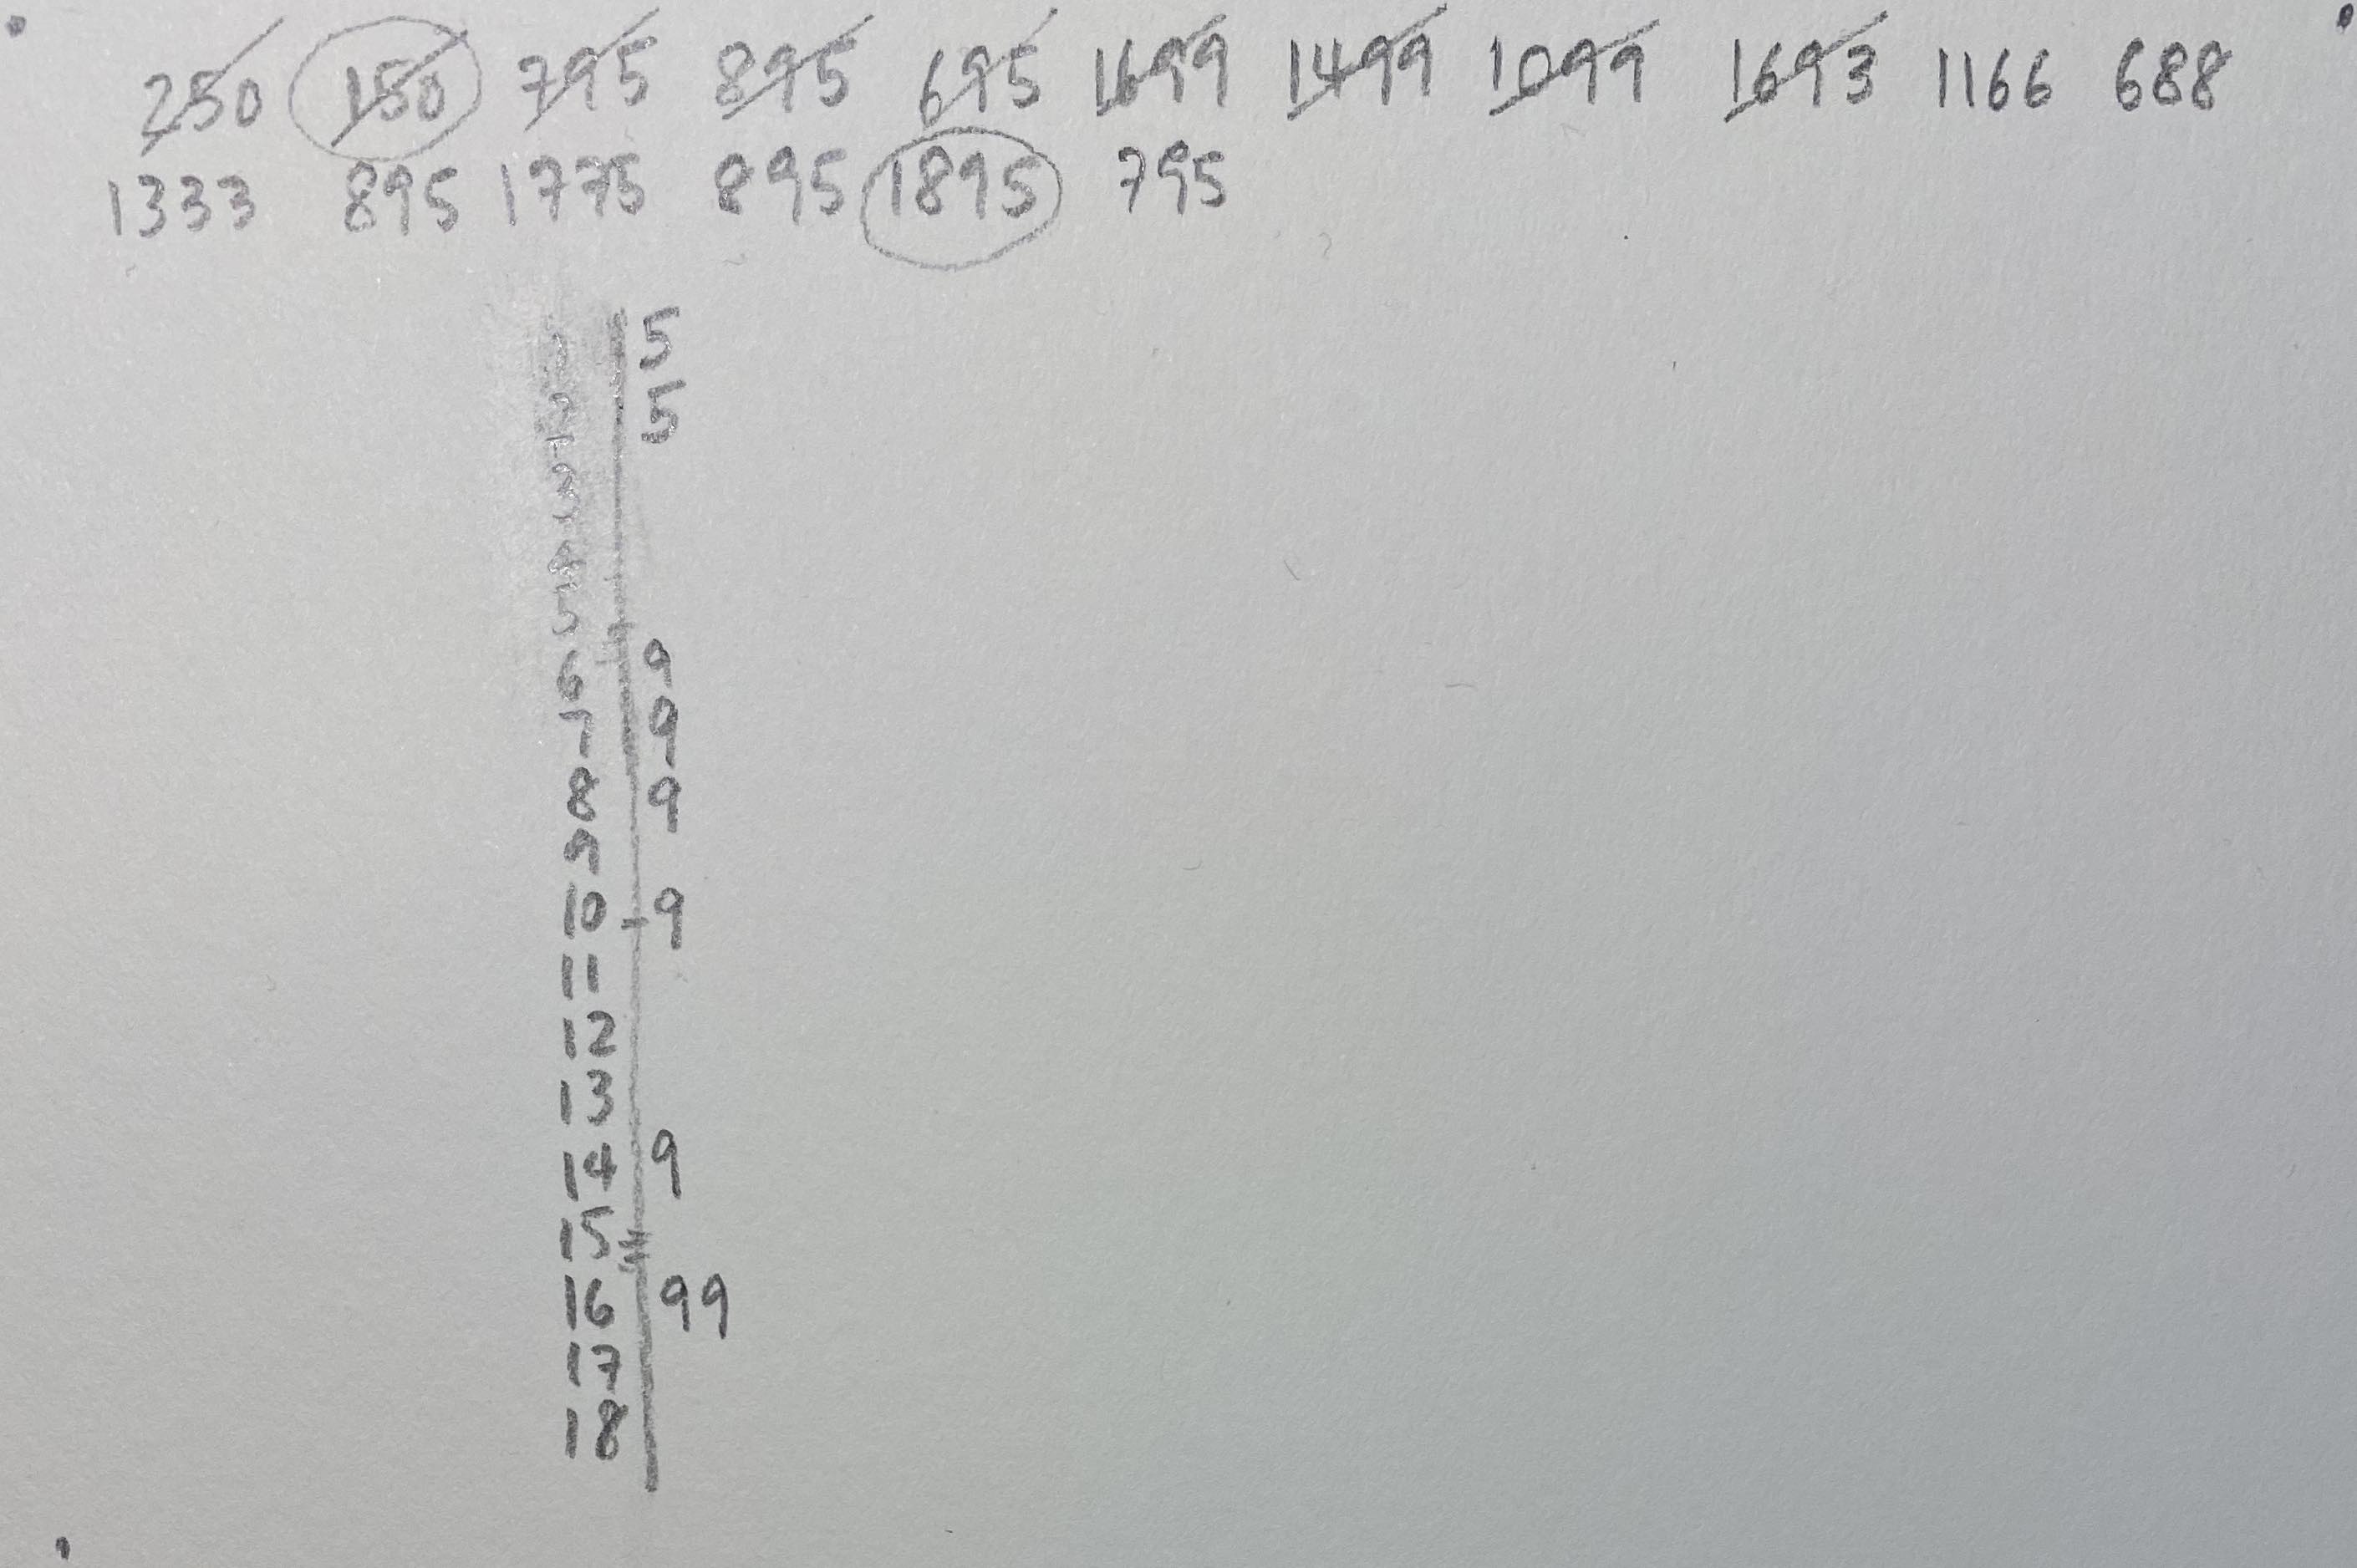 250 150 795 895 695 1699 1499 1099 1693 1166 688
1333 895 1775 895 1895 795
1 | 5
2 | 5
3 |
4 |
5 |
6 | 9
7 | 9
8 | 9
9 |
10 | 9
11 |
12 |
13 |
14 | 9
15 |
16 | 99
17 |
18 |